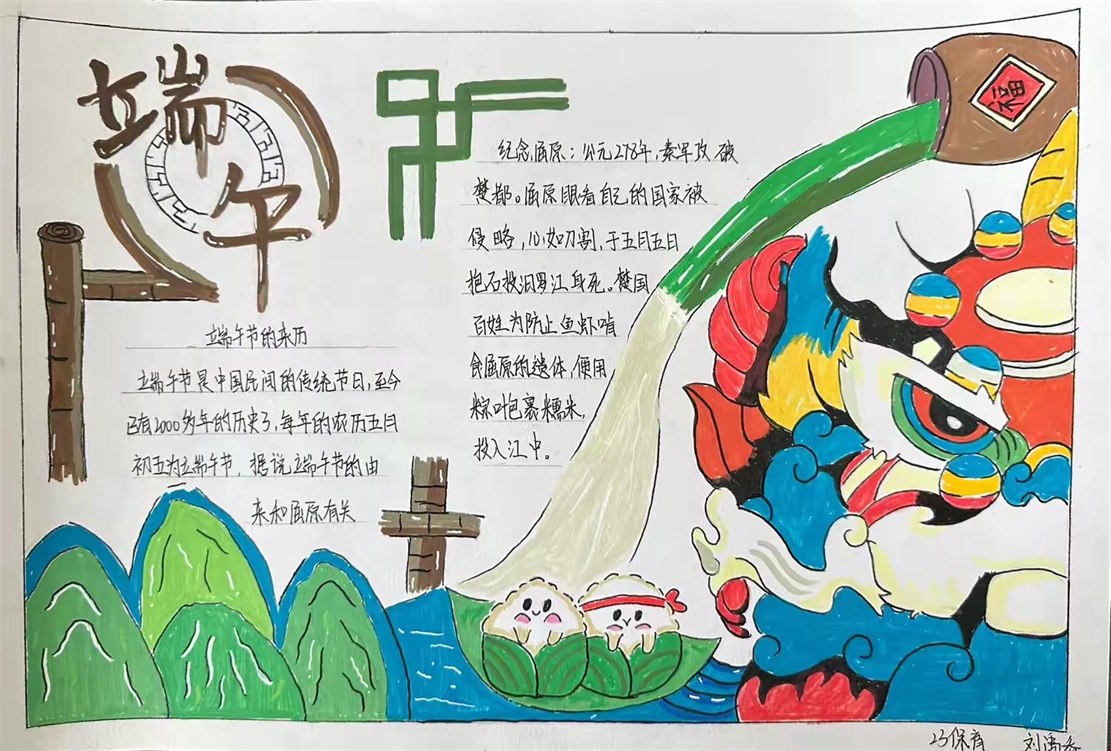 端午
端午节的来历
端午节是中国民间的传统节日,至今
已有2000多年的历史了,每年的农历五月
初五为端午节,据说端午节的由
来和屈原有关
纪念屈原:公元278年,秦军攻破
楚都。屈原眼看自己的国家被
侵略,心如刀割,于五月五日
抱石投汨罗江身死。楚国
百姓为防止鱼虾啃
食屈原的遗体,便用
粽叶包裹糯米,
投入江中。
23保育